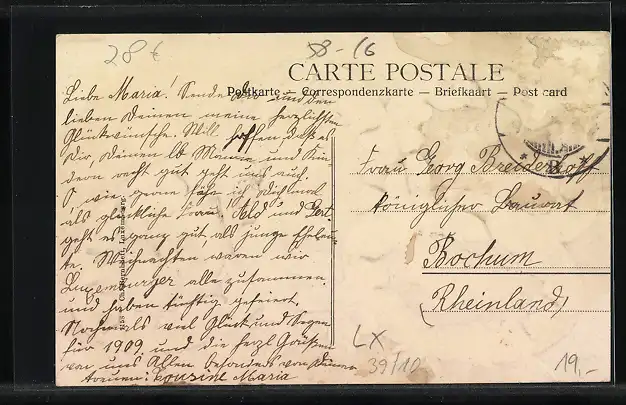 28 €
8-16
CARTE POSTALE
Postkarte — Correspondenzkarte — Briefkaart — Post card
Liebe Maria! Sende Dir und den
lieben Deinen meine herzlichsten
Glückwünsche. Will hoffen daß es
Dir, Deinem lb Manne und Kin-
dern recht gut geht uns auch.
O wie gerne sähe ich Dich mal
als glückliche Frau. Ald und Gert.
geht es ganz gut als junge Eheleu-
te. Weihnachten waren wir
Luxemburger alle zusammen
und haben tüchtig gefeiert.
Nochmals viel Glück und Segen
für 1909, und die herzl Grüße
von uns Allen besonders von Deiner
treuen: Cousine Maria
Frau Georg Breiderhoff
Königlicher Baurat
Bochum
(Rheinland)
*B*
LX
39/10
19,-